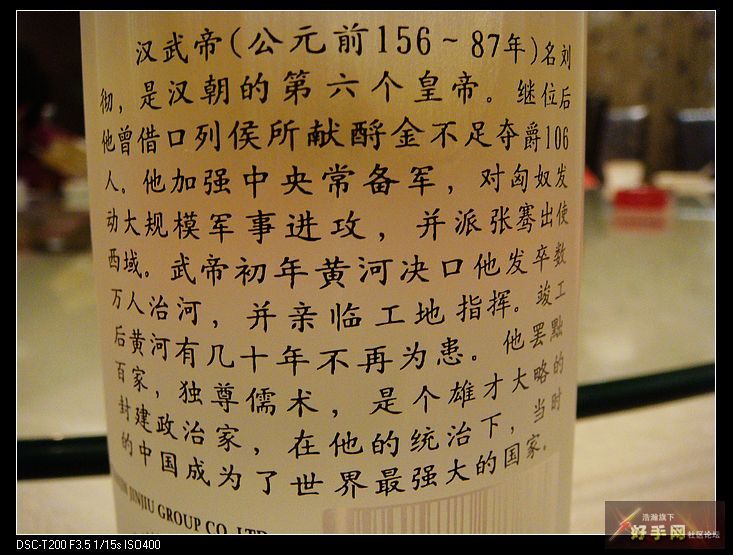 汉武帝(公元前156~87年)名刘
彻，是汉朝的第六个皇帝。继位后
他曾借口列侯所献酹金不足夺爵106
人。他加强中央常备军，对匈奴发
动大规模军事进攻，并派张骞出使
西域。武帝初年黄河决口他发卒数
万人治河，并亲临工地指挥。竣工
后黄河有几十年不再为患。他罢黜
百家，独尊儒术，是个雄才大略的
封建政治家，在他的统治下，当时
的中国成为了世界最强大的国家.
JINJIU GROUP CO. LTD
DSC-T200 F3.5 1/15s ISO400
浩瀚旗下
好手网社区论坛